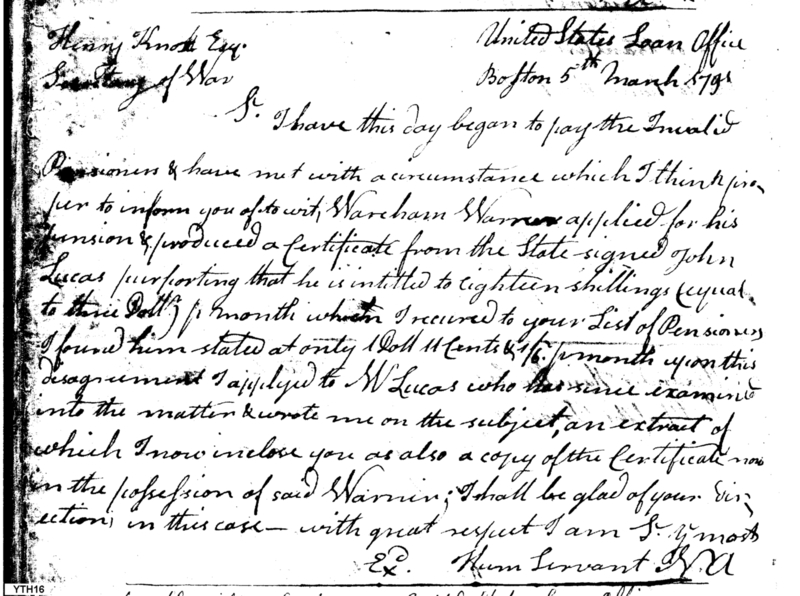 Henry Knox Esq.
United States Loan Office
Secretary of War
Boston 5th March 1791
Sr. I have this day began to pay the Invalid
Pensioners & have met with a circumstance which I think pro-
per to inform you of, to wit, Wareham Warner applied for his
pension & produced a Certificate from the State signed John
Lucas purporting that he is intitled to Eighteen shillings (equal
to three Dollrs) p month when I recured to your List of Pensioners
I found him stated at only 1 Doll 11 Cents & 1/6 p month upon this
disagreement I applyed to Mr Lucas who has since examined
into the matter & wrote me on the subject, an extract of
which I now inclose you as also a copy of the Certificate now
in the possession of said Warner; I shall be glad of your Dir-
ections in this case — with great respect I am Sr. yr most
Exd. Hum Servant N. A
YTH16